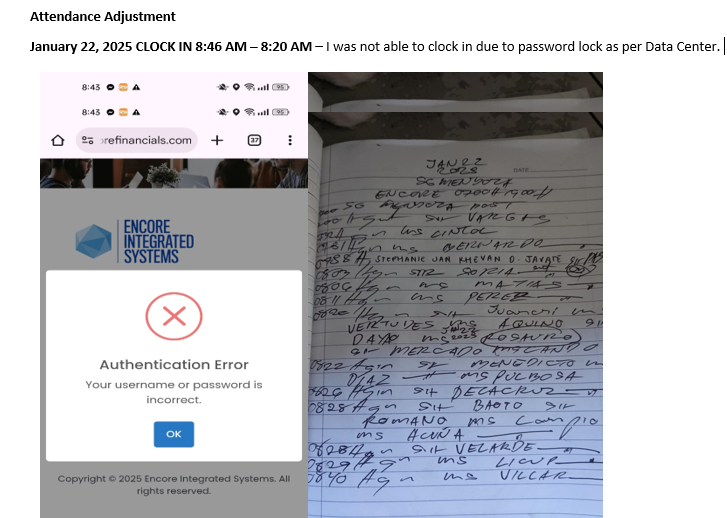 Attendance Adjustment
January 22, 2025 CLOCK IN 8:46 AM – 8:20 AM – I was not able to clock in due to password lock as per Data Center.
8:43
95
8:43
95
refinancials.com
37
ENCORE
INTEGRATED
SYSTEMS
Authentication Error
Your username or password is
incorrect.
OK
Copyright © 2025 Encore Integrated Systems. All
rights reserved.
JAN 22
2025
DATE
SG MENDOZA
ENCORE 0700H 1900H
SG MENDOZA post
SIR VARGAS
ms
ms BERNARDO
STEPHANIE JAN KHEVAN D. JAVATE
SIR SORIA
0806H ms MATIAS
0811H ms PEREZ
0820H
VERTUDES ms AQUINO
DAYAO ms ROSAURO
SIR MERCADO
0822H SIR BENEDICTO
DIAZ ms PULBOSA
0826H SIR DELACRUZ
0828H SIR BAOTO SIR
ROMANO ms
ms ACUÑA
0828H SIR VELARDE
0829H ms LICUP
0840H ms VILLAR